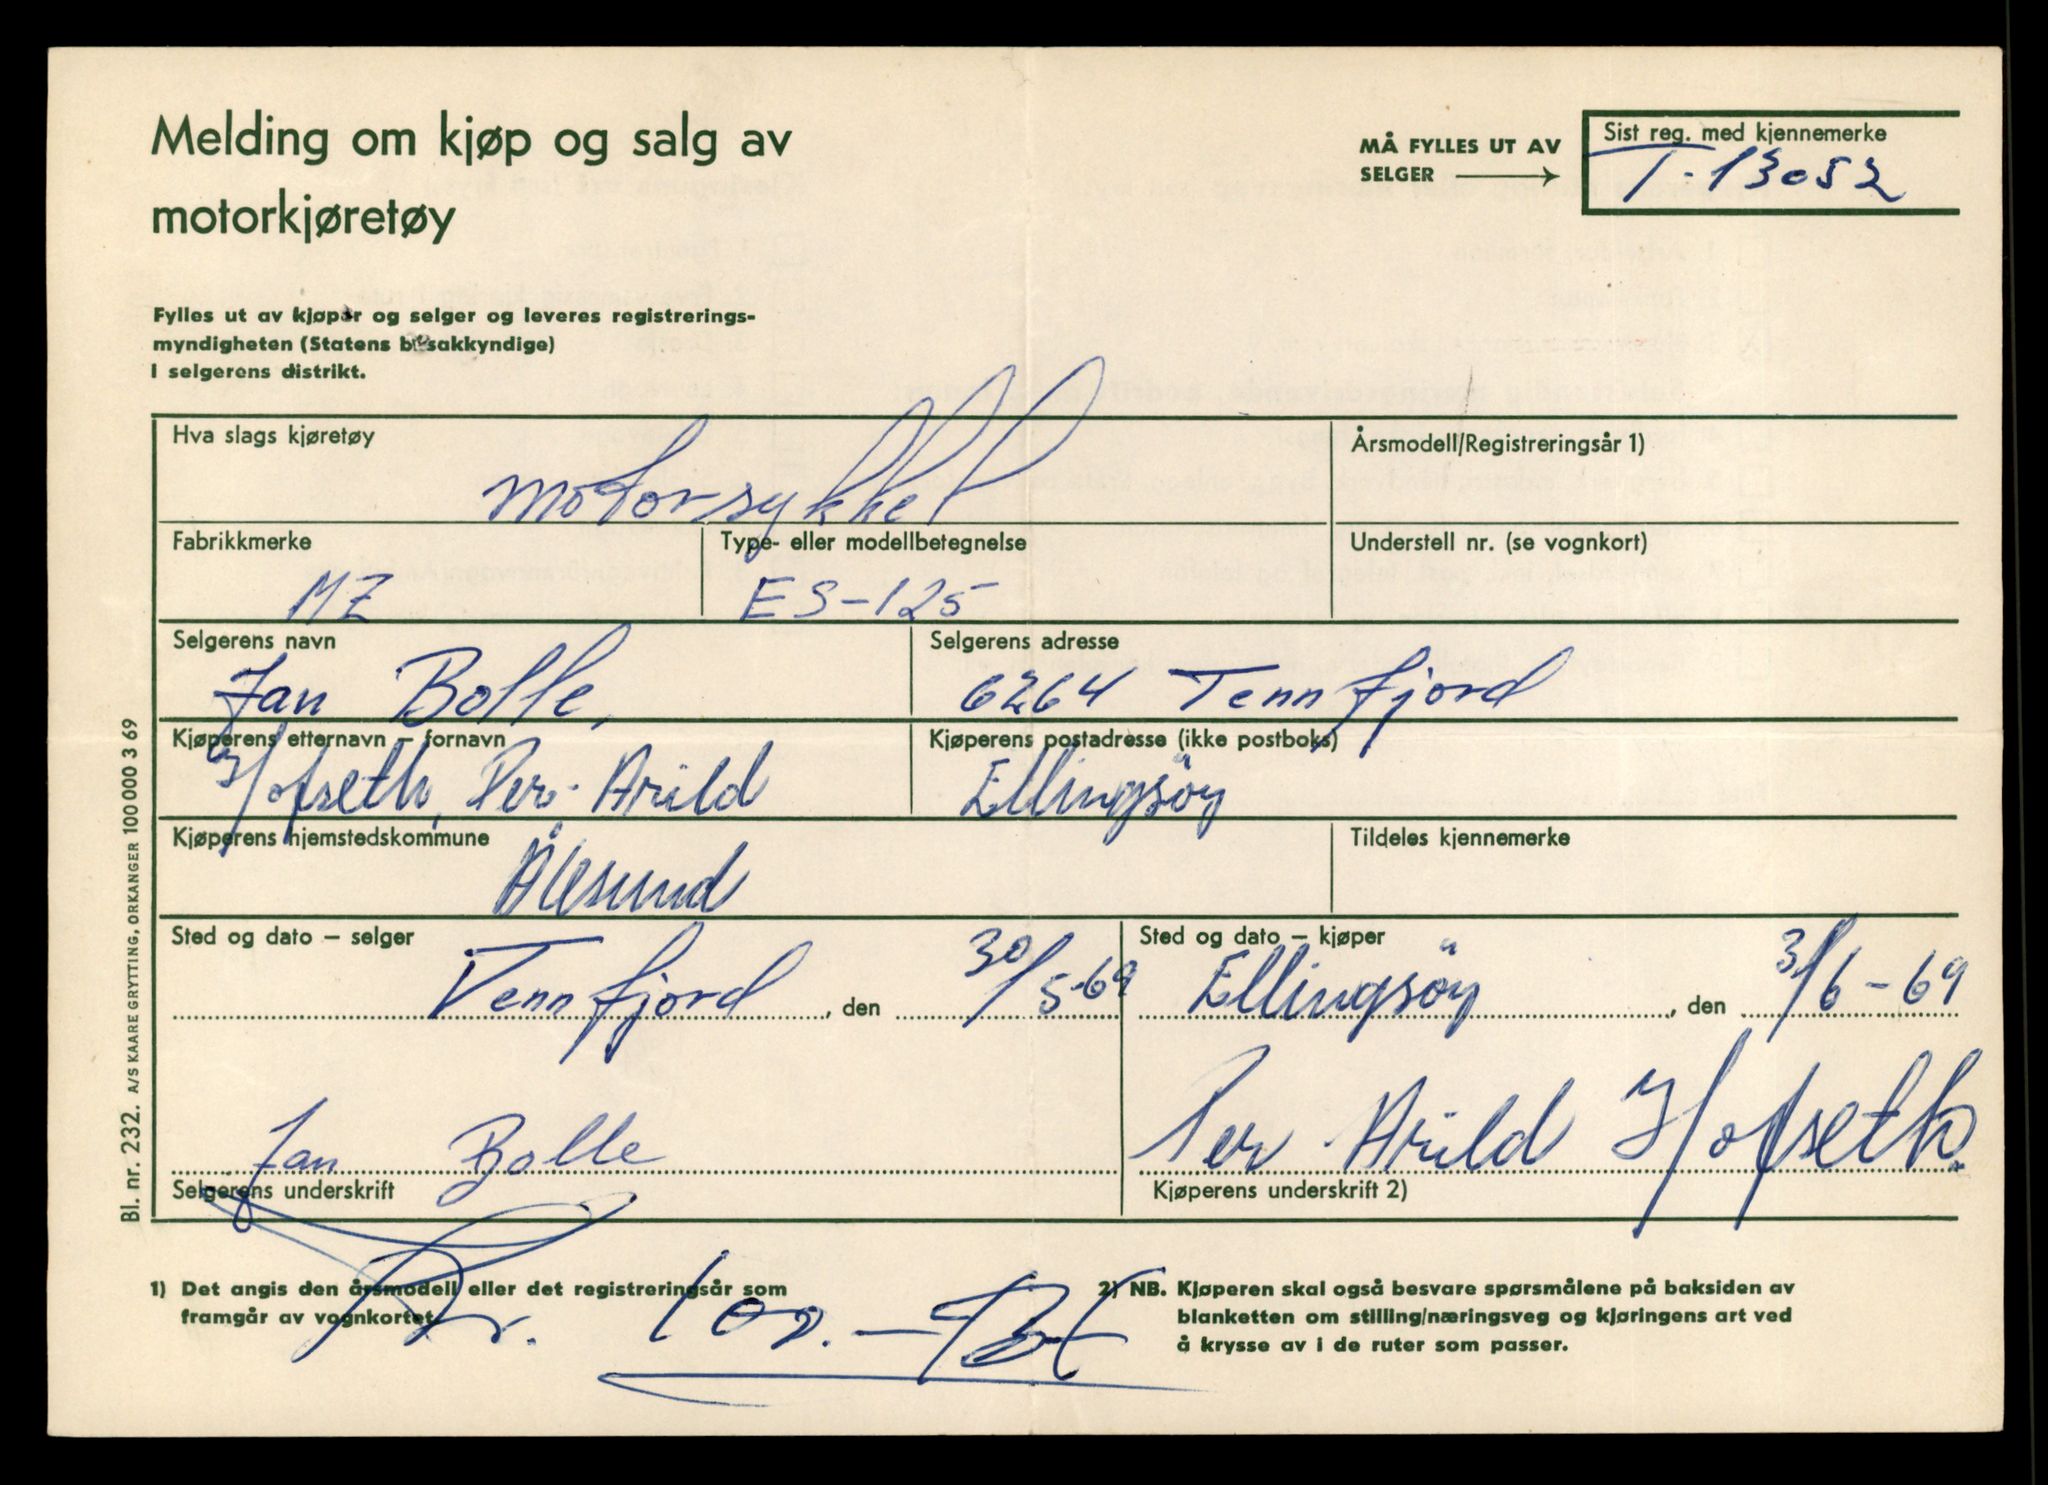 Melding om kjøp og salg av
motorkjøretøy
MÅ FYLLES UT AV
SELGER →
Sist reg. med kjennemerke
T-13052
Fylles ut av kjøper og selger og leveres registrerings-
myndigheten (Statens bilsakkyndige)
i selgerens distrikt.
Hva slags kjøretøy
motorsykkel
Årsmodell/Registreringsår 1)
Fabrikkmerke
MZ
Type- eller modellbetegnelse
ES-125
Understell nr. (se vognkort)
Selgerens navn
Jan Bolle,
Selgerens adresse
6264 Tennfjord
Kjøperens etternavn – fornavn
Hofseth, Per-Arild
Kjøperens postadresse (ikke postboks)
Ellingsöy
Kjøperens hjemstedskommune
Ålesund
Tildeles kjennemerke
Sted og dato – selger
Tennfjord, den 30/5-69
Sted og dato – kjøper
Ellingsöy, den 3/6-69
Jan Bolle
Selgerens underskrift
Per Arild Hofseth
Kjøperens underskrift 2)
Kr. 100.-
1) Det angis den årsmodell eller det registreringsår som
framgår av vognkortet.
2) NB. Kjøperen skal også besvare spørsmålene på baksiden av
blanketten om stilling/næringsveg og kjøringens art ved
å krysse av i de ruter som passer.
Bl. nr. 232. A/S KAARE GRYTTING, ORKANGER 100 000 3 69